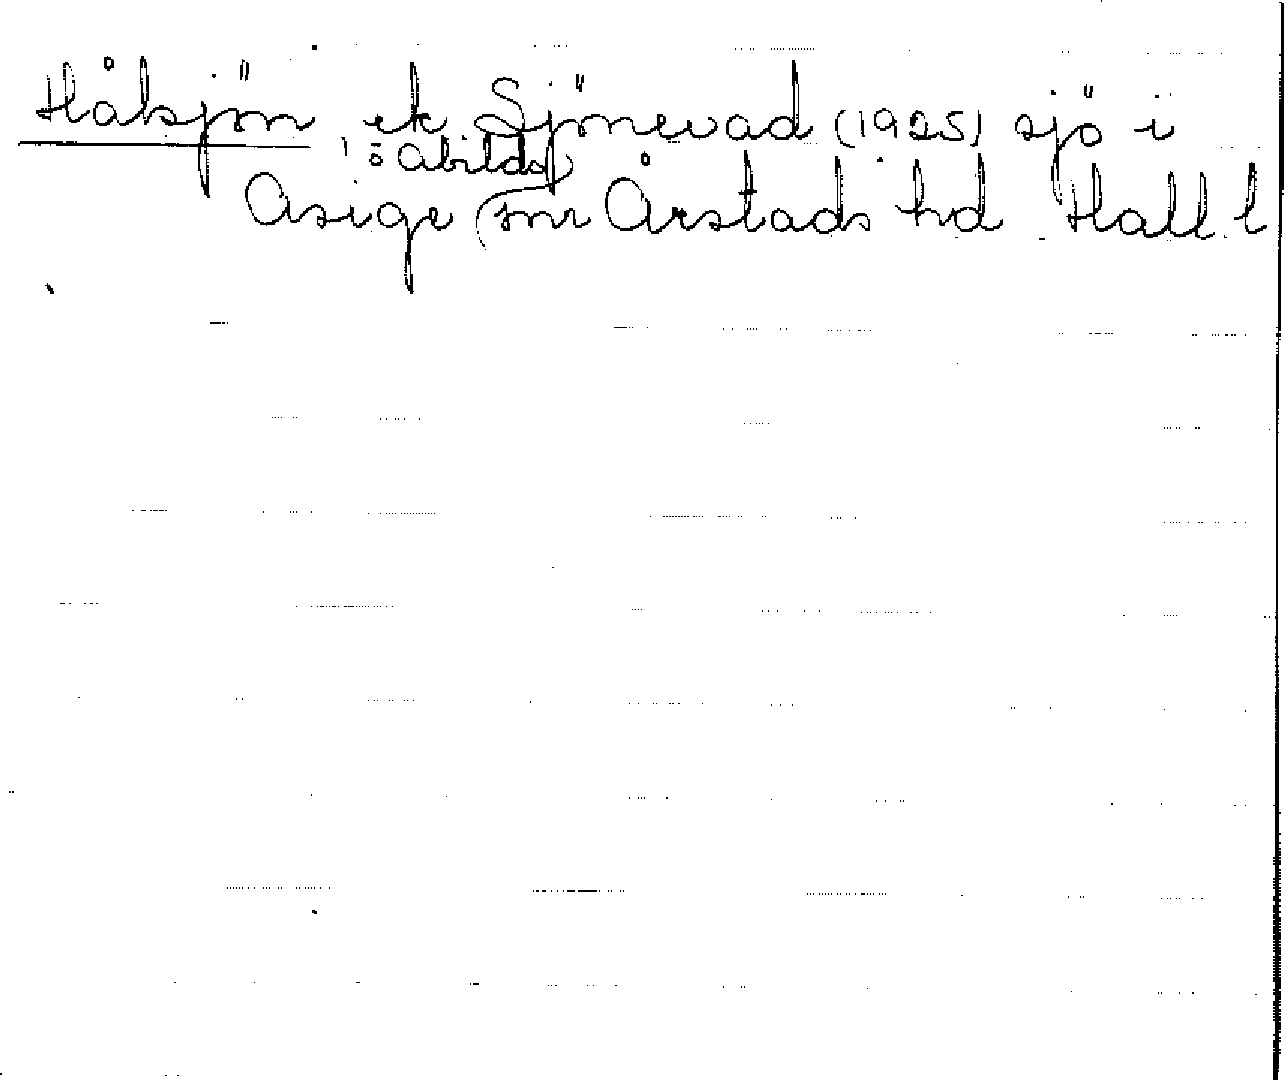 Hålsjön, ek Sjönevad (1925) sjö i
o Abilds
Asige snr Årstads hd Hall l